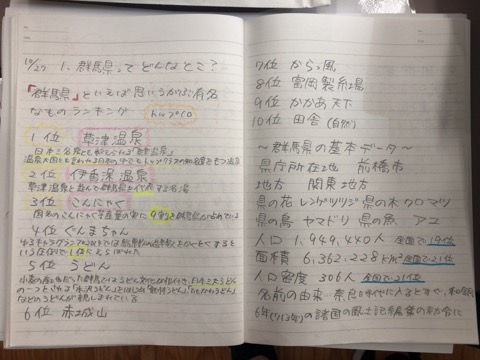 10/27 1. 群馬県ってどんなとこ?
「群馬県」といえば思いうかぶ有名
なものランキング トップ10
1位 草津温泉
日本三名泉にも
温泉大国ともいわれる日本の中でもトップクラスの知名度をもつ温泉
2位 伊香保温泉
草津温泉と並んで群馬県を代表する名湯
3位 こんにゃく
国内のこんにゃく芋生産量の実に9割を群馬県が占めている
4位 ぐんまちゃん
ゆるキャラグランプリ2014では
いう位置付で1位にえらばれた
5位 うどん
小麦の産地
の一つとされる「水沢うどん」
などのうどんが親しまれている
6位 赤城山
7位 からっ風
8位 富岡製糸場
9位 かかあ天下
10位 田舎(自然)
~群馬県の基本データ~
県庁所在地 前橋市
地方 関東地方
県の花 レンゲツツジ 県の木 クロマツ
県の鳥 ヤマドリ 県の魚 アユ
人口 1,949,440人 全国で19位
面積 6,362,228km² 全国で21位
人口密度 306人 全国で21位
名前の由来 奈良時代に入るとすぐ、和銅
6年(713年)の諸国の風土記編纂の勅令に